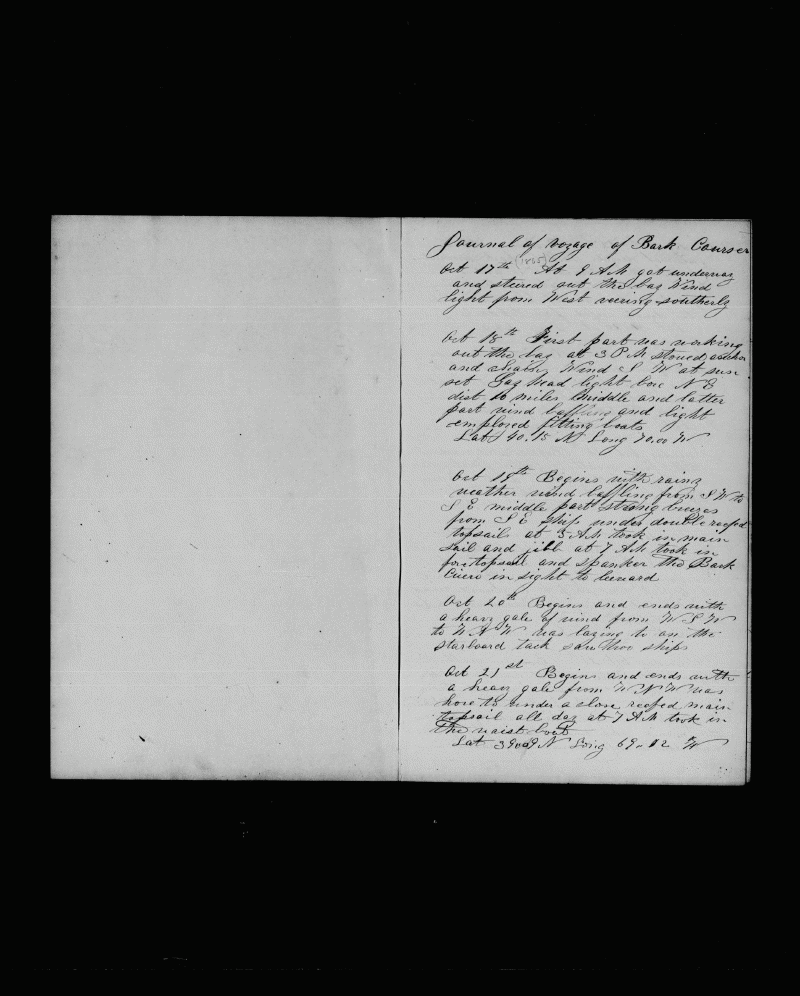 Journal of voyage of Bark Courser
Oct 17th (1865) At 9 A M got underway
and steered out the bay Wind
light from West veering southerly
Oct 18th First part was working
out the bay at 3 P M stowed anchor
and chains Wind S W at sun
set Gay head light bore N E
dist 10 miles middle and latter
part wind baffling and light
employed fitting boats
Lat 40.15 N Long 70.00 W
Oct 19th Begins with rainy
weather wind baffling from S W to
S E middle part strong breezes
from S E ship under double reefed
topsails at 5 A M took in main
sail and jibb at 7 A M took in
foretopsail and spanker the Bark
in sight to leward
Oct 20th Begins and ends with
a heavy gale of wind from W S W
to W N W was laying to on the
starboard tack saw three ships
Oct 21st Begins and ends with
a heavy gale from W N W was
hove to under a close reefed main
topsail all day at 7 A M took in
the waist boat
Lat 39.09 N Long 69.12 W